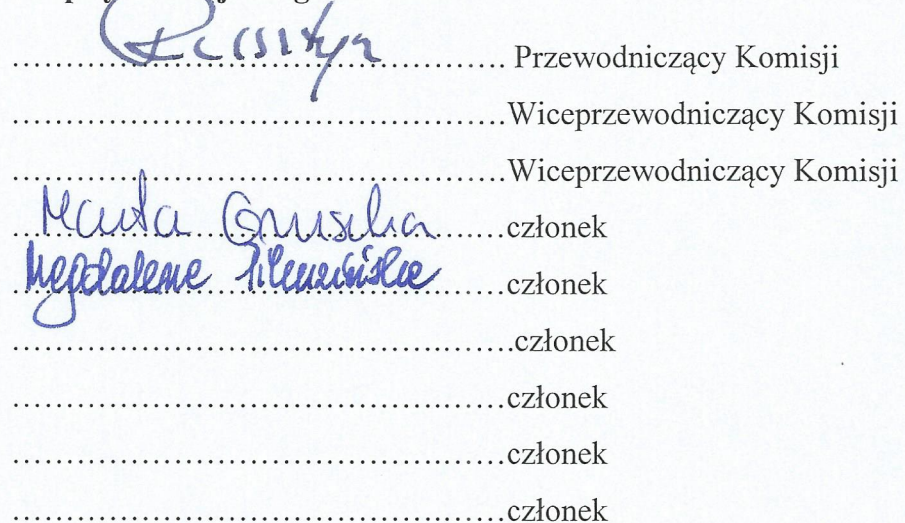 Przewodniczący Komisji
Wiceprzewodniczący Komisji
Wiceprzewodniczący Komisji
Marta członek
Magdalena członek
członek
członek
członek
członek